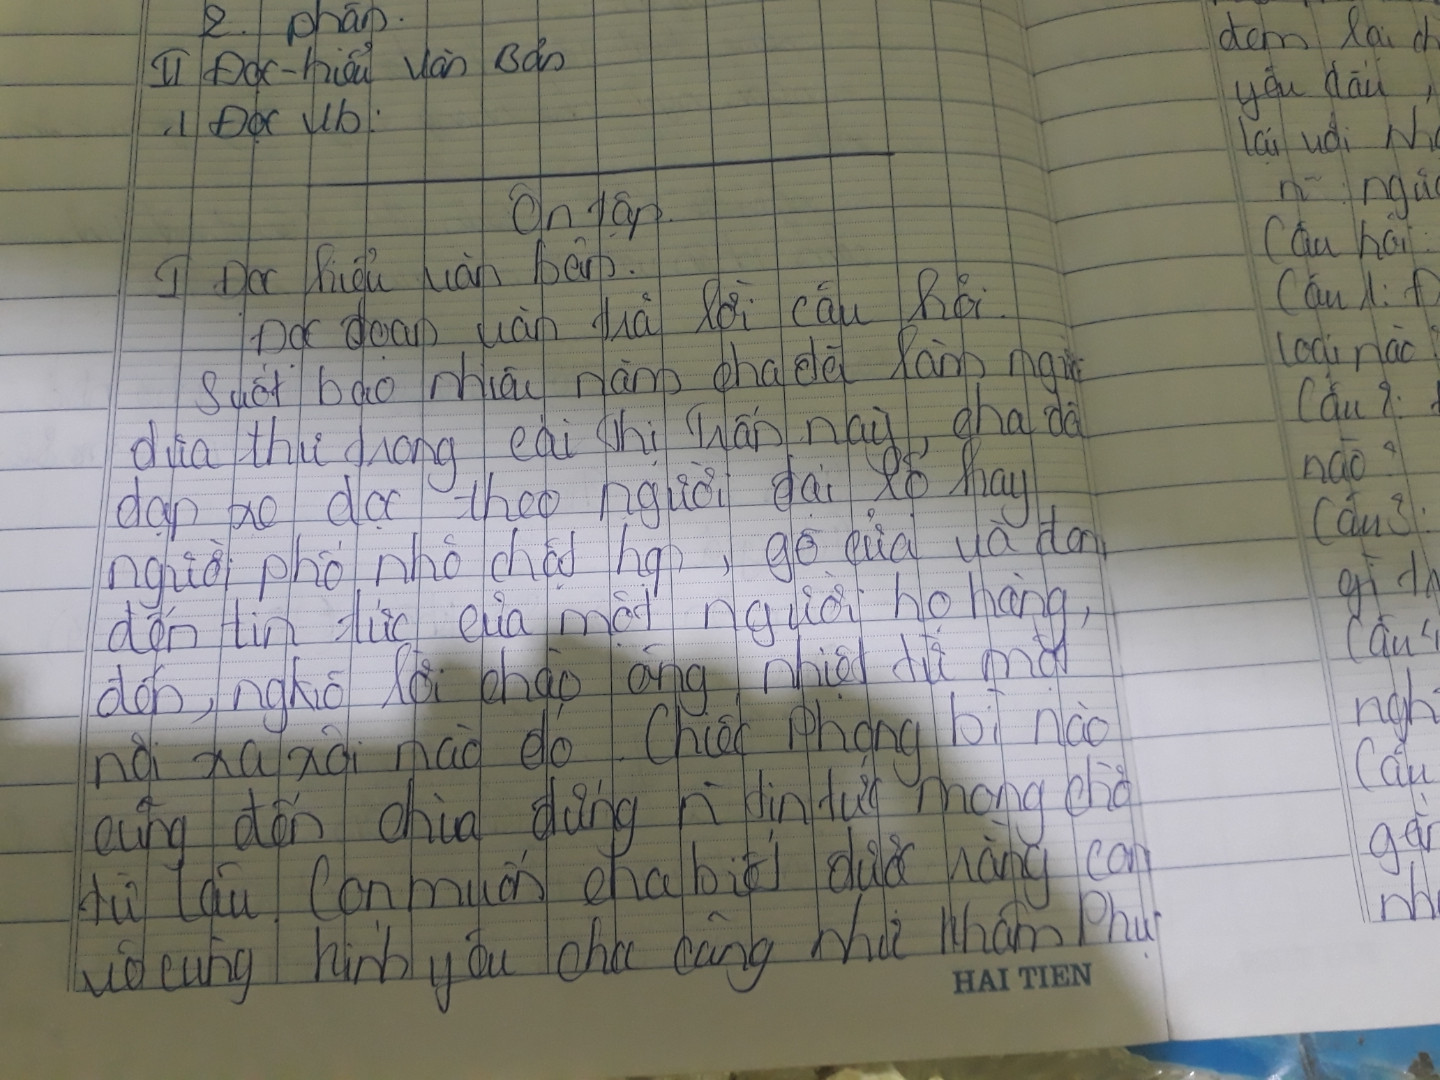 2. phần.
II Đọc-hiểu văn Bản
1 Đọc Vb:
Ôn tập
I Đọc hiểu văn bản.
Đọc đoạn văn trả lời câu hỏi.
Suốt bao nhiêu năm cha đã làm người
đưa thư trong cái thị trấn này, cha đã
đạp xe dọc theo người đại lộ hay
người phố nhỏ chật hẹp, gõ cửa và đem
đến tin tức của một người họ hàng,
đến, nghe lời chào nhiệt từ một
nơi xa xôi nào đó. Chiếc Phong bì nào
cũng đến chứa đựng n~ tin tức mong chờ
từ lâu. Con muốn cha biết được rằng con
vô cùng kính yêu cha cũng như khâm Phục
HAI TIEN
đem lại
yêu dấu,
lại với
n~
Câu hỏi:
Câu 1:
loại nào?
Câu 2:
nào?
Câu 3:
gì
Câu
Câu